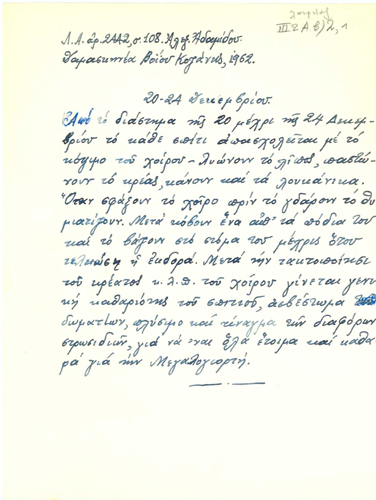 ΙΙΙ 2 Α β) 2, 1
Λ.Λ. ἀρ. 2442, σ. 108. Ἀλεξ. Ἀδαμίδου.
Δαμασκηνία Βοΐου Κοζάνης, 1962.
20-24 Δεκεμβρίου.
Ἀπό τό διάστημα τῆς 20 μέχρι τῆς 24 Δεκεμ-
βρίου τό κάθε σπίτι ἀπασχολεῖται μέ τό
κόψιμο τοῦ χοίρου - Λυώνουν τό λῖπος, παστώ-
νουν τό κρέας, κάνουν καί τά λουκάνικα.
Ὅταν σφάξουν τό χοῖρο πρίν τό γδάρουν τό θυ
μιατίζουν. Μετά κόβουν ἕνα ἀπ' τά πόδια του
καί τό βάζουν στό στόμα του μέχρις ὅτου
τελειώση ἡ ἐκδορά. Μετά τήν τακτοποίησι
τοῦ κρέατος κ.λ.π. τοῦ χοίρου γίνεται γενι
κή καθαριότης τοῦ σπιτιοῦ, ἀσβέστωμα
δωματίων, πλύσιμο καί τίναγμα τῶν διαφόρων
στρωσιδιῶν, γιά νά 'ναι ὅλα ἕτοιμα καί καθα
ρά γιά τήν Μεγαλογιορτή.